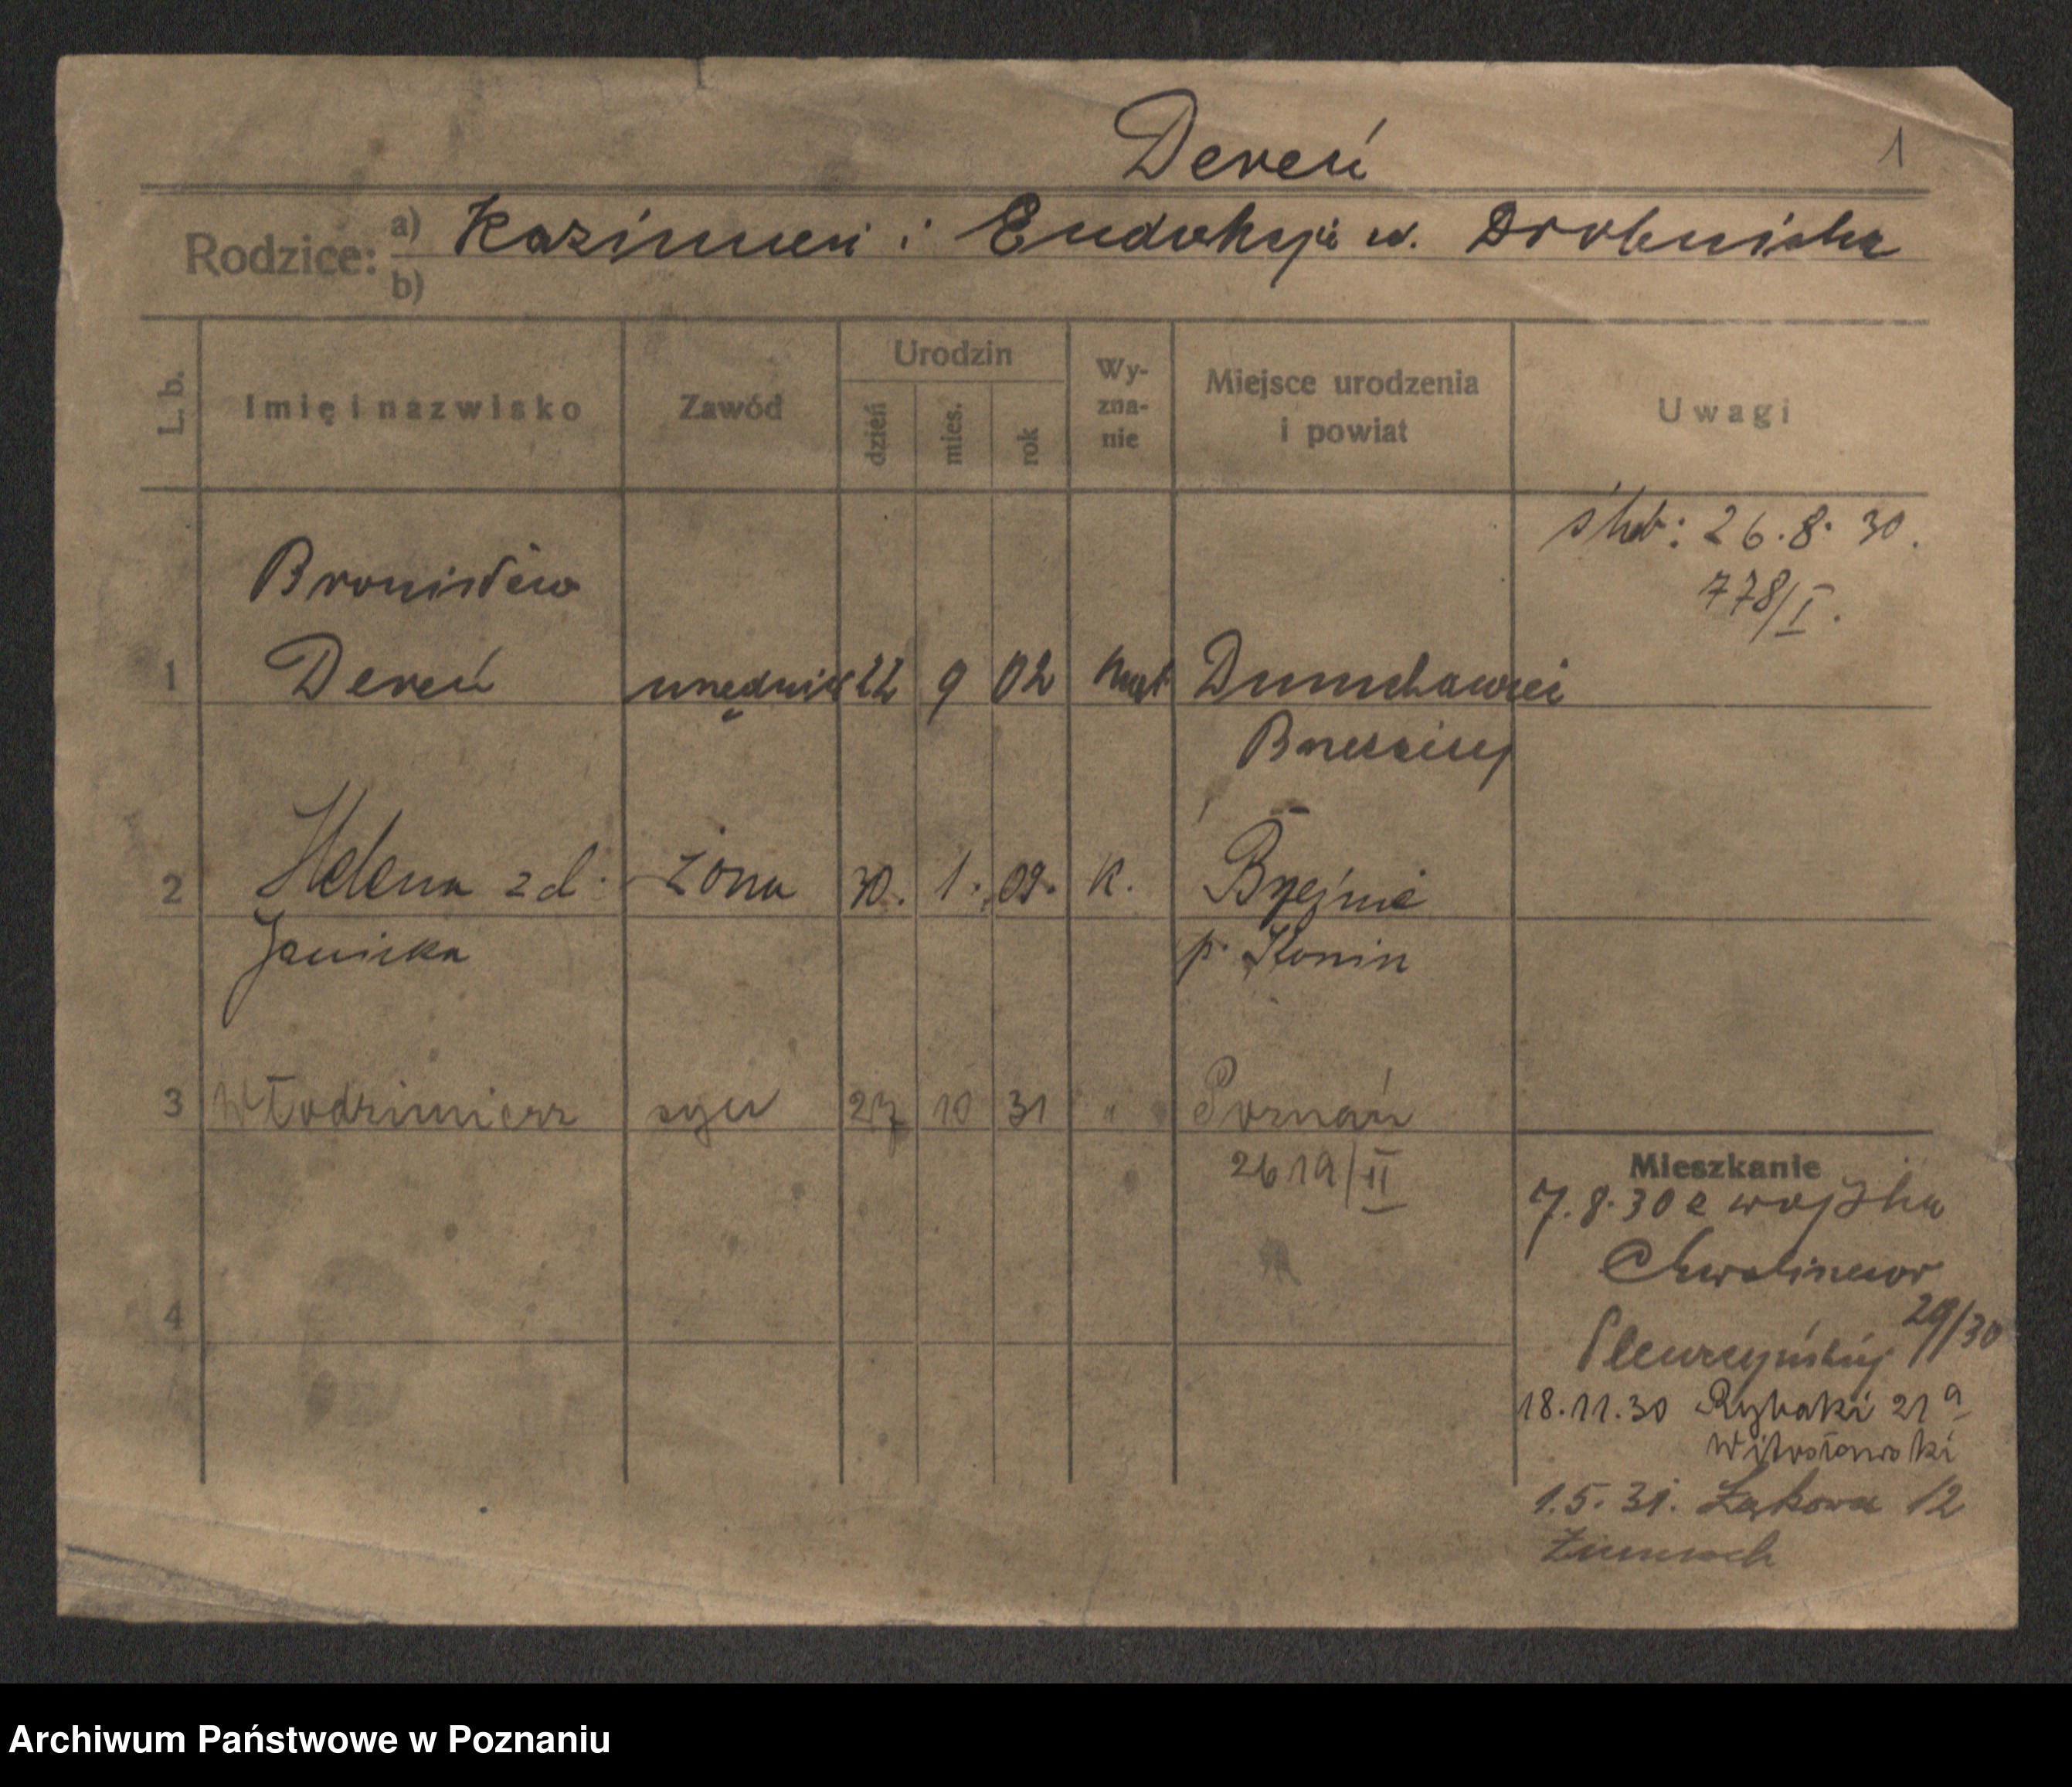 Dereń
1
Rodzice:
a) Kazimierz i Eudoksja z d. Drobnicka
b)
L. b.
Imię i nazwisko
Zawód
Urodzin
dzień
mies.
rok
Wy-
zna-
nie
Miejsce urodzenia
i powiat
Uwagi
ślub: 26.8.30.
778/I.
Bronisław
1 Dereń urzędnik 22 9 02 kat
2 Helena z d. żona 30. 1. 09. k. Brzeźno
Janicka p. Konin
3 Włodzimierz syn 27 10 31 " Poznań
2619/II
4
Mieszkanie
7.8.30 z wojska
29/30
18.11.30 Rybaki 21a
Witosławski
1.5.31. Łąkowa 12
Archiwum Państwowe w Poznaniu